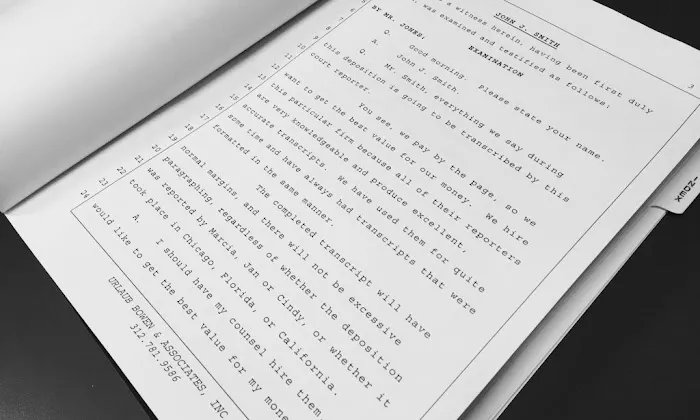 3
JOHN J. SMITH
a witness herein, having been first duly
was examined and testified as follows:
EXAMINATION
BY MR. JONES:
Q. Good morning. Please state your name.
A. John J. Smith.
Q. Mr. Smith, everything we say during
this deposition is going to be transcribed by this
court reporter.
You see, we pay by the page, so we
want to get the best value for our money. We hire
this particular firm because all of their reporters
are very knowledgeable and produce excellent,
accurate transcripts. We have used them for quite
some time and have always had transcripts that were
formatted in the same manner.
The completed transcript will have
normal margins, and there will not be excessive
paragraphing, regardless of whether the deposition
was reported by Marcia, Jan or Cindy, or whether it
took place in Chicago, Florida, or California.
A. I should have my counsel hire them
would like to get the best value for my mone
5
6
7
8
9
10
11
12
13
14
15
16
17
18
19
20
21
22
23
24
URLAUB BOWEN & ASSOCIATES, INC
312.781.9586